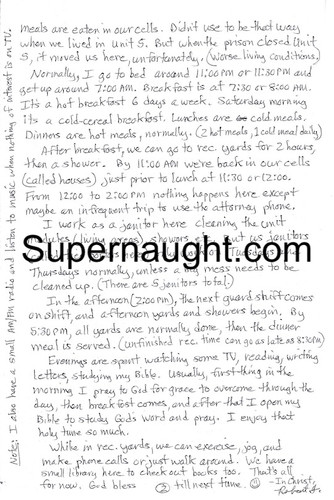 meals are eaten in our cells. Didn't use to be that way
when we lived in Unit 5. But when the prison closed Unit
5, it moved us here, unfortunately. (Worse living conditions)
Normally, I go to bed around 11:00 PM or 11:30 PM and
get up around 7:00 AM. Breakfast is at 7:30 or 8:00 AM.
It's a hot breakfast 6 days a week. Saturday morning
its a cold-cereal breakfast. Lunches are cold meals.
Dinners are hot meals, normally. (2 hot meals, 1 cold meal daily)
After breakfast, we can go to rec yards for 2 hours,
then a shower. By 11:00 AM we're back in our cells
(called houses) just prior to lunch at 11:30 or 12:00.
From 12:00 to 2:00 PM nothing happens here except
maybe an infrequent trip to use the attorney phone.
I work as a janitor here cleaning the unit
(living areas) showers but us janitors
Supernaught.com
Tuesdays and
Thursdays normally, unless a big mess needs to be
cleaned up. (There are 5 janitors total.)
In the afternoon (2:00 PM), the next guard shift comes
on shift, and afternoon yards and showers begin. By
5:30 PM, all yards are normally done, then the dinner
meal is served. (unfinished rec. time can go as late as 8:30 PM)
Evenings are spent watching some TV, reading, writing
letters, studying my Bible. Usually, first thing in the
morning I pray to God for grace to overcome through the
day, then breakfast comes, and after that I open my
Bible to study God's Word and pray. I enjoy that
holy time so much.
While in rec. yards, we can exercise, jog, and
make phone calls or just walk around. We have a
small library here to check out books too. That's all
for now. God bless 2 till next time. - In Christ,
Robert
Note: I also have a small AM/FM radio and listen to music when nothing of interest is on TV.